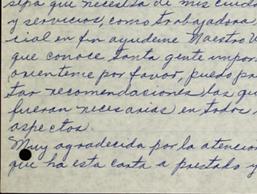 sepa que necesita de mis cuida
y servicios, como trabajadora
cial en fin ayudeme Maestro V
que conoce tanta gente impor
orienteme por favor, puedo pre
tar recomendaciones las que
fueran necesarias en todos
aspectos.
Muy agradecida por la atencion
que ha esta carta a prestado y